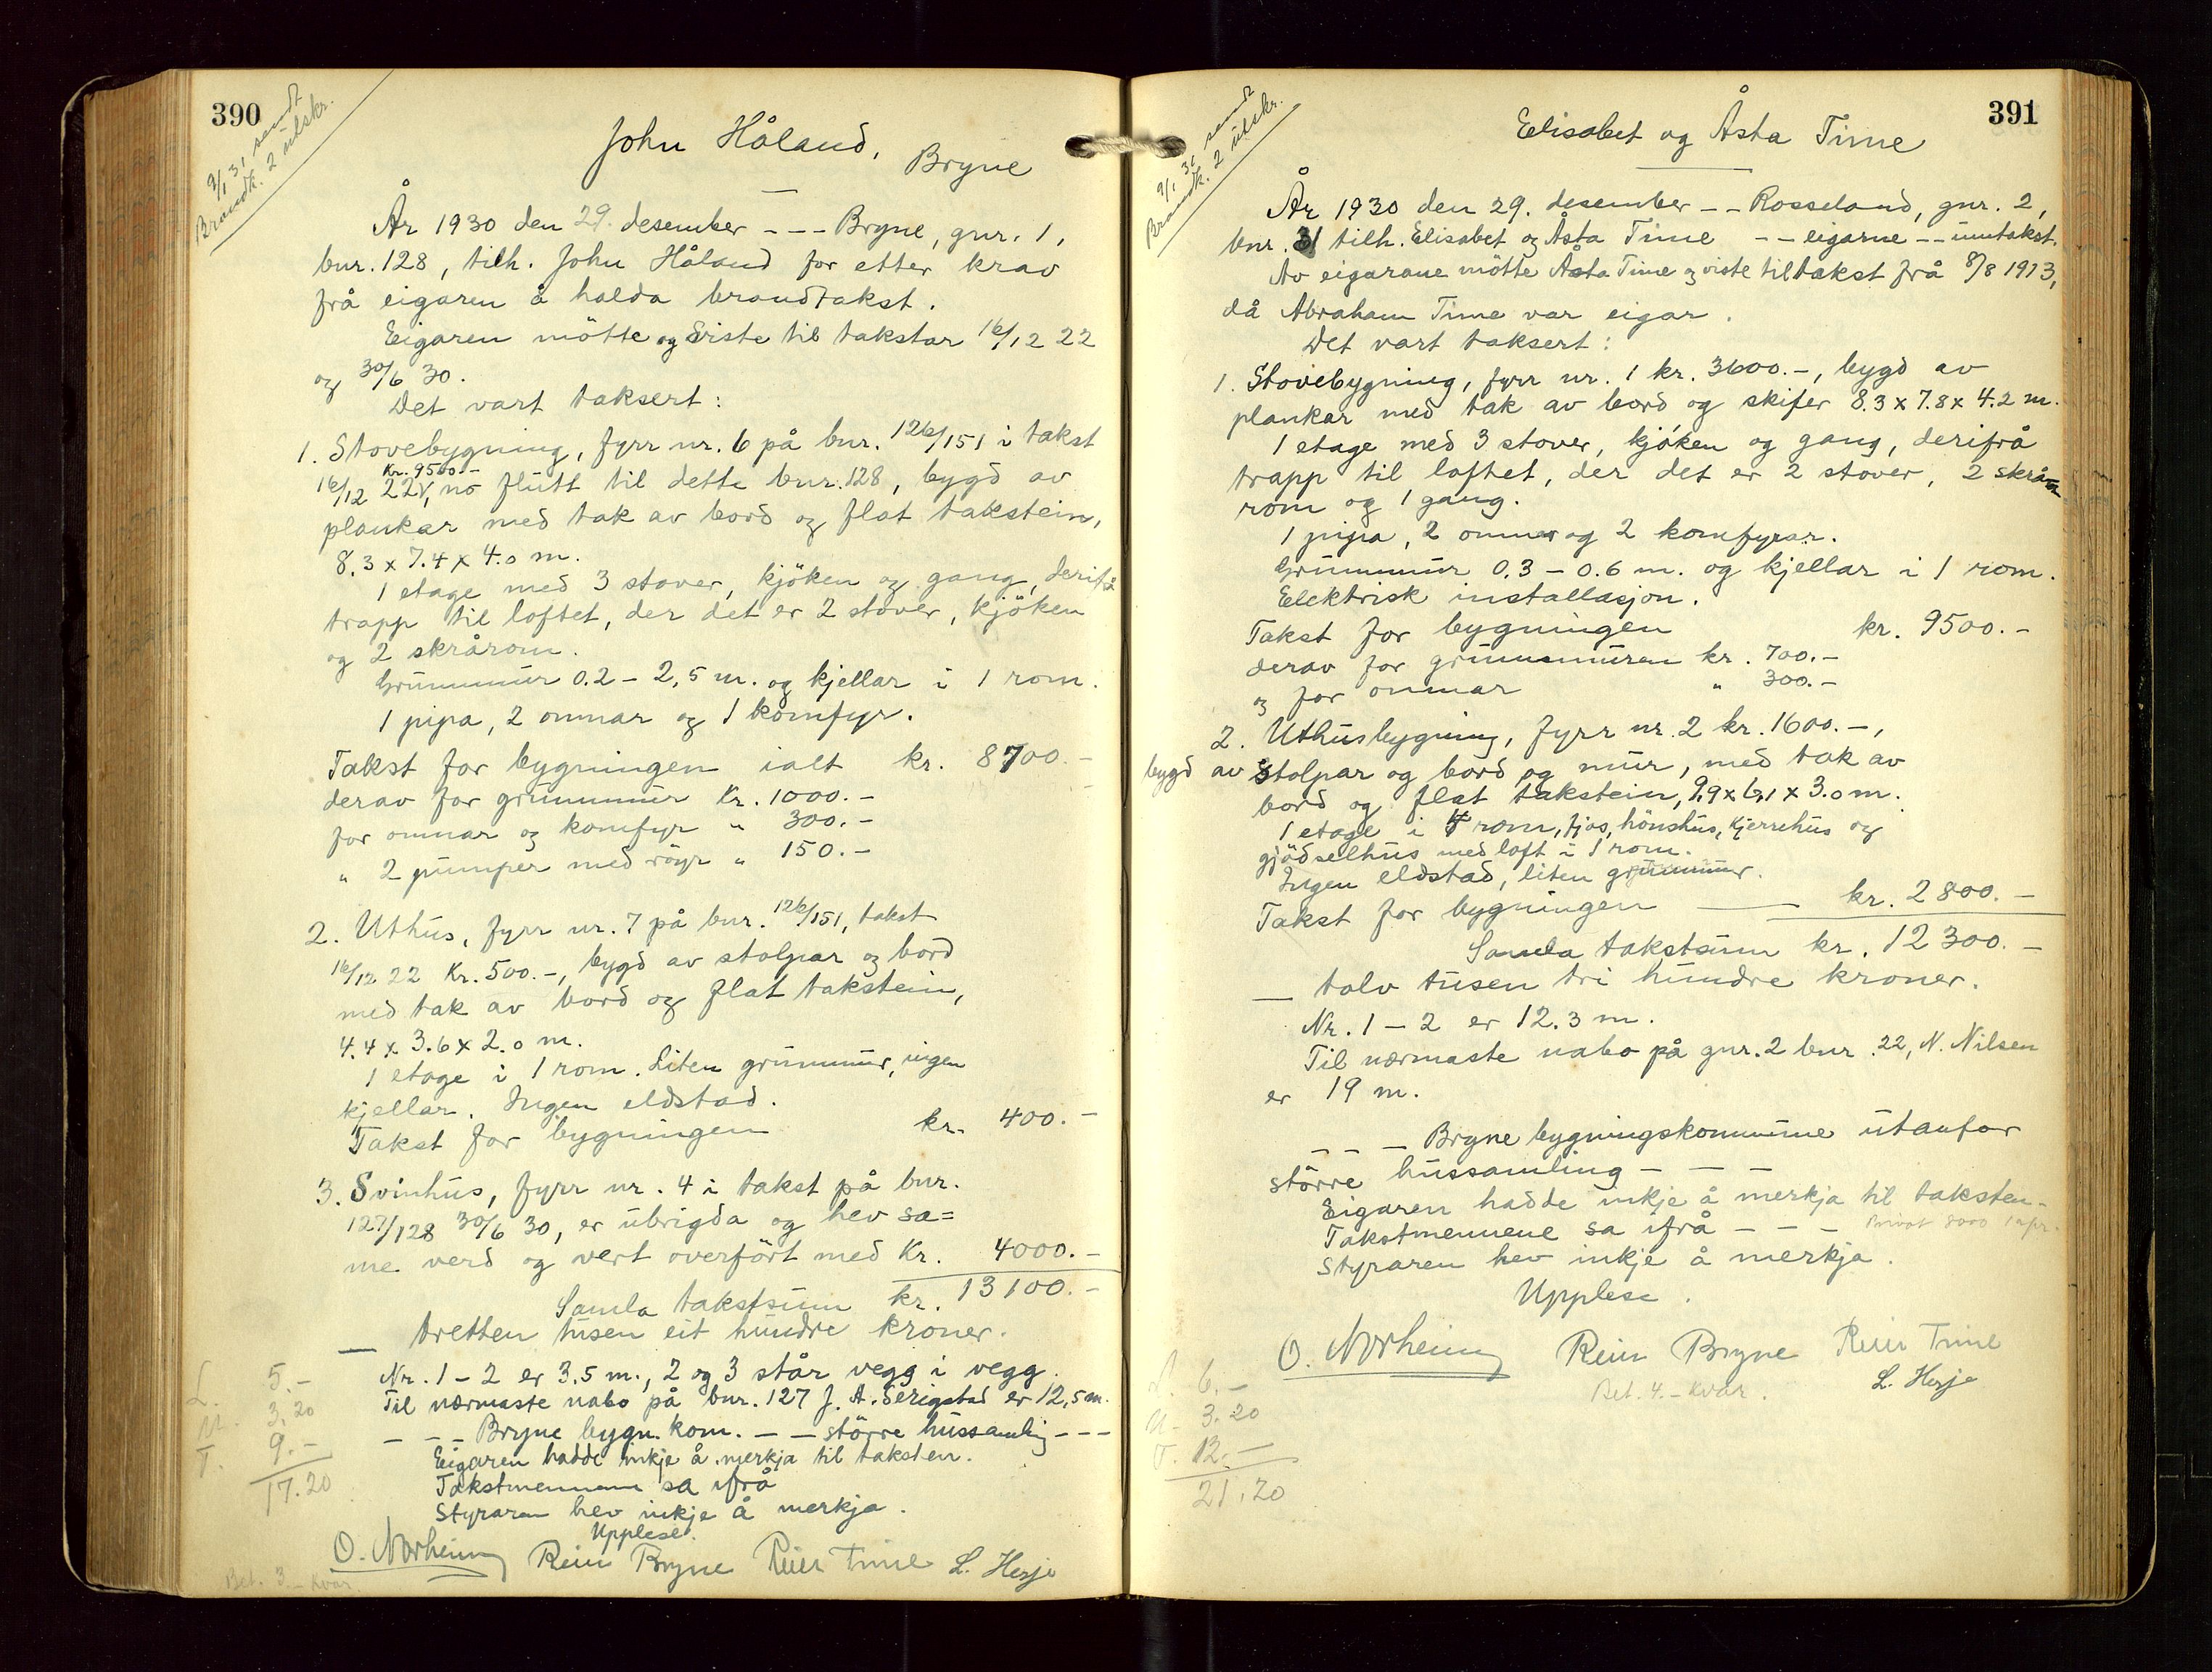 390
9/1 31 sendt
Brandk. 2 utskr.
John Håland,
Bryne
År 1930 den 29. desember - - - Bryne, gnr. 1,
bnr. 128, tilh. John Håland for etter krav
frå eigaren å halda brandtakst.
Eigaren mötte og viste til takstar 16/12 22
og 30/6 30.
Det vart taksert:
1. Stovebygning, fyrr nr. 6 på bnr. 126/151 i takst
kr. 9500.-
16/12 22, no flutt til dette bnr. 128, bygd av
plankar med tak av bord og flat takstein,
8.3 x 7.4 x 4.0 m.
1 etage med 3 stover, kjöken og gang, derifrå
trapp til loftet, der det er 2 stover, kjöken
og 2 skrårom.
Grunnmur 0.2 - 2,5 m. og kjellar i 1 rom.
1 pipa, 2 omnar og 1 komfyr.
Takst for bygningen ialt kr. 8700.-
derav for grunnmur kr. 1000.-
for omnar og komfyr " 300.-
" 2 pumper med röyr " 150.-
2. Uthus, fyrr nr. 7 på bnr. 126/151, takst
16/12 22 kr. 500.-, bygd av stolpar og bord
med tak av bord og flat takstein,
4.4 x 3.6 x 2.0 m.
1 etage i 1 rom. Liten grunnmur, ingen
kjellar. Ingen eldstad.
Takst for bygningen kr. 400.-
3. Svinhus, fyrr nr. 4 i takst på bnr.
127/128 30/6 30, er ubrigda og hev sa=
me verd og vert overfört med kr. 4000.-
Samla takstsum kr. 13100.-
— tretten tusen eit hundre kroner.
Nr. 1 - 2 er 3.5 m., 2 og 3 står vegg i vegg.
Til nærmaste nabo på bnr. 127 J. A. Serigstad er 12,5 m.
- - - Bryne bygn. kom. - - större hussamling - - -
Eigaren hadde inkje å merkja til taksten.
Takstmennene sa ifrå
Styraren hev inkje å merkja.
Upplese.
O. Norheim Reier Bryne Reier Time L. Herje
L. 5.-
U. 3.20
T. 9.-
17.20
Bet. 3.- kvar
391
9/1 31 sendt
Brandk. 2 utskr.
Elisabet og Åsta Time
År 1930 den 29. desember - - Rosseland, gnr. 2,
bnr. 31 tilh. Elisabet og Åsta Time - - eigarne - - umtakst.
Av eigarane mötte Åsta Time og viste til takst frå 8/8 1913,
då Abraham Time var eigar.
Det vart taksert:
1. Stovebygning, fyrr nr. 1 kr. 3600.-, bygd av
plankar med tak av bord og skifer 8.3 x 7.8 x 4.2 m.
1 etage med 3 stover, kjöken og gang, derifrå
trapp til loftet, der det er 2 stover, 2 skrå=
rom og 1 gang.
1 pipa, 2 omnar og 2 komfyrar.
Grunnmur 0.3 - 0.6 m. og kjellar i 1 rom.
Elektrisk installasjon.
Takst for bygningen kr. 9500.-
derav for grunnmuren kr. 700.-
og for omnar " 300.-
2. Uthusbygning, fyrr nr. 2 kr. 1600.-,
bygd av stolpar og bord og mur, med tak av
bord og flat takstein, 9.9 x 6.1 x 3.0 m.
1 etage i 4 rom, fjos, hönshus, kjerrehus og
gjödselhus med loft i 1 rom.
Ingen eldstad, liten grunnmur.
Takst for bygningen — kr. 2800.-
Samla takstsum kr. 12300.-
— tolv tusen tri hundre kroner.
Nr. 1 - 2 er 12.3 m.
Til nærmaste nabo på gnr. 2 bnr. 22, N. Nilsen
er 19 m.
- - - Bryne bygningskommune utanfor
större hussamling - - -
Eigaren hadde inkje å merkja til taksten.
Takstmennene sa ifrå - - - Privat 8000
Styraren hev inkje å merkja.
Upplese.
O. Norheim Reier Bryne Reier Time
L. Herje
Bet. 4.- kvar.
L. 6.-
U. 3.20
T. 12.-
21.20